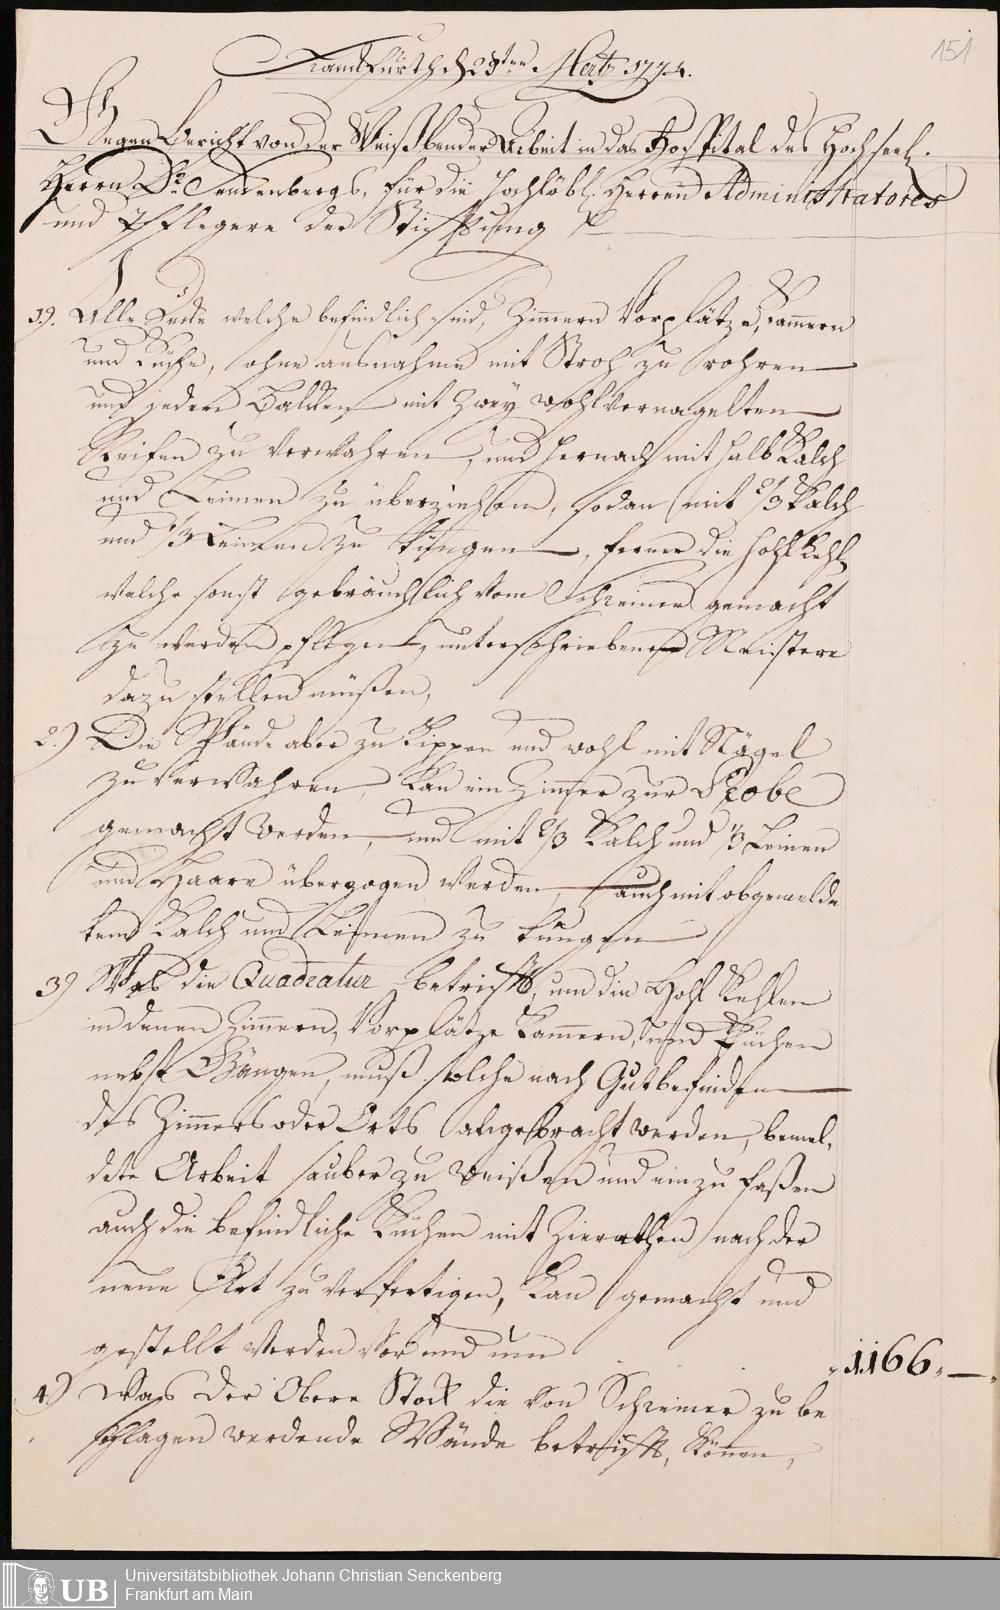 151
Franckfurth d 29ten Mertz 1774.
Gegen Bericht von der Weißbender Arbeit in das Hospital des Hochseel.
Herrn Dr. Senckenbergs, für die Hochlöbl. Herren Administratores
und Pflegere der Stifftung
1.) Alle Decke welche befindlich sind, Zimmern Vorplätze, Kammern
und Küche, ohne ausnahme mit Stroh zu rohren
und jeden Balcken mit Zwey wohl vernagelten
Reifen zu verwahren, und hernach mit halb Kalch
und Leimen zu überziehen, sodan mit 2/3 Kalch
und 1/3 Leimen zu tüngen, ferner die Hohl Kehl
welche sonst gebräuchlich vom Schreiner gemacht
zu werden pflegen, unterschriebene Meistere
dazu stellen müßen,
2.) Die Wände aber zu Kippen und wohl mit Nägel
zu verwahren, Kan ein Zimmer zur Probe
gemacht werden, und mit 2/3 Kalch und 1/3 Leimen
und Haare überzogen werden, auch mit obgemelde
tem Kalch und Leimen zu tüngen
3) Was die Quadratur betrifft, und die Hohl Kehlen
in denen Zimmern, Vorplätze Kammern, und Küchen
nebst Gängen, muß solche nach Gutbefinden
des Zimmers oder Orts angebracht werden, bemel,
dete Arbeit sauber zu weißen und einzu faßen
auch die befindliche Küchen mit Zierathen nach der
neue Art zu verfertigen, Kan gemacht und
gestellt werden vor und um
1166 „ —
4.) Was der Obere Stock die von Schreiner zu be
schlagen werdende Wände betrifft, Können,
UB
Universitätsbibliothek Johann Christian Senckenberg
Frankfurt am Main